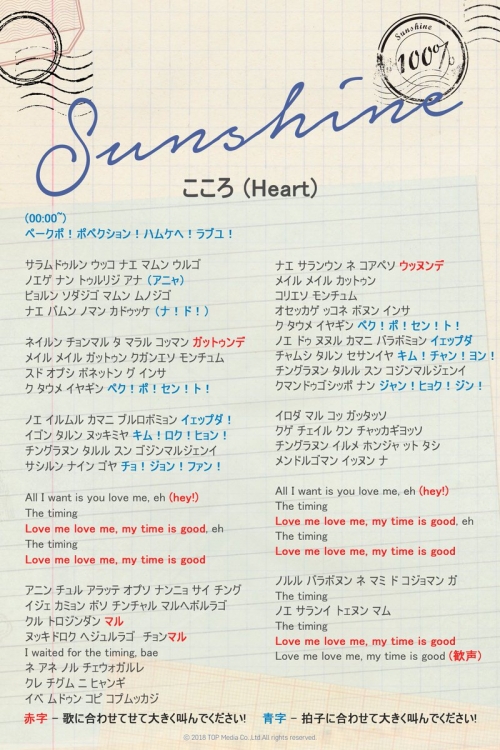 Sunshine
100%
Sunshine
こころ (Heart)
(00:00~)
ペークポ！ポペクション！ハムケヘ！ラブユ！
サラムドゥルン ウッコ ナエ マムン ウルゴ
ノエゲ ナン トゥルリジ アナ（アニャ）
ビョルン ソダジゴ マムン ムノジゴ
ナエ バムン ノマン カドゥッケ（ナ！ド！）
ネイルン チョンマル タ マラル コッマン ガットゥンデ
メイル メイル ガットゥン クガンエソ モンチュム
スド オプシ ボネットン グ インサ
ク タウメ イヤギン ペク！ポ！セン！ト！
ノエ イルムル カマニ プルロボミョン イェップダ！
イゴン タルン ヌッキミヤ キム！ロク！ヒョン！
チングラヌン タルル スン ゴジンマルジェンイ
サシルン ナイン ゴヤ チョ！ジョン！ファン！
All I want is you love me, eh (hey!)
The timing
Love me love me, my time is good, eh
The timing
Love me love me, my time is good
アニン チュル アラッテ オプソ ナンニョ サイ チング
イジェ カミョン ボソ チンチャル マルヘボルラゴ
クル トロジンダン マル
ヌッキドロク ヘジュルラゴ チョンマル
I waited for the timing, bae
ネ アネ ノル チェウォガルレ
クレ チグム ニ ヒャンギ
イベ ムドゥン コピ コプムッカジ
ナエ サランウン ネ コアペソ ウッヌンデ
メイル メイル カットゥン
コリエソ モンチュム
オセッカゲ ッコネ ボヌン インサ
ク タウメ イヤギン ペク！ポ！セン！ト！
ノエ ドゥ ヌヌル カマニ バラボミョン イェップダ
チャムシ タルン セサンイヤ キム！チャン！ヨン！
チングラヌン タルル スン コジンマルジェンイ
クマンドゥゴシッポ ナン ジャン！ヒョク！ジン！
イロダ マル コッ ガッタッソ
クゲ チェイル クン チャッカギヨッソ
チングラヌン イルメ ホンジャ ット タシ
メンドルゴマン イッヌン ナ
All I want is you love me, eh (hey!)
The timing
Love me love me, my time is good, eh
The timing
Love me love me, my time is good
ノルル バラボヌン ネ マミ ド コジョマン ガ
The timing
ノエ サランイ トェヌン マム
The timing
Love me love me, my time is good
Love me love me, my time is good (歓声)
赤字 – 歌に合わせてせて大きく叫んでください! 青字 – 拍子に合わせて大きく叫んでください!
© 2018 TOP Media Co.,Ltd.All rights reserved.